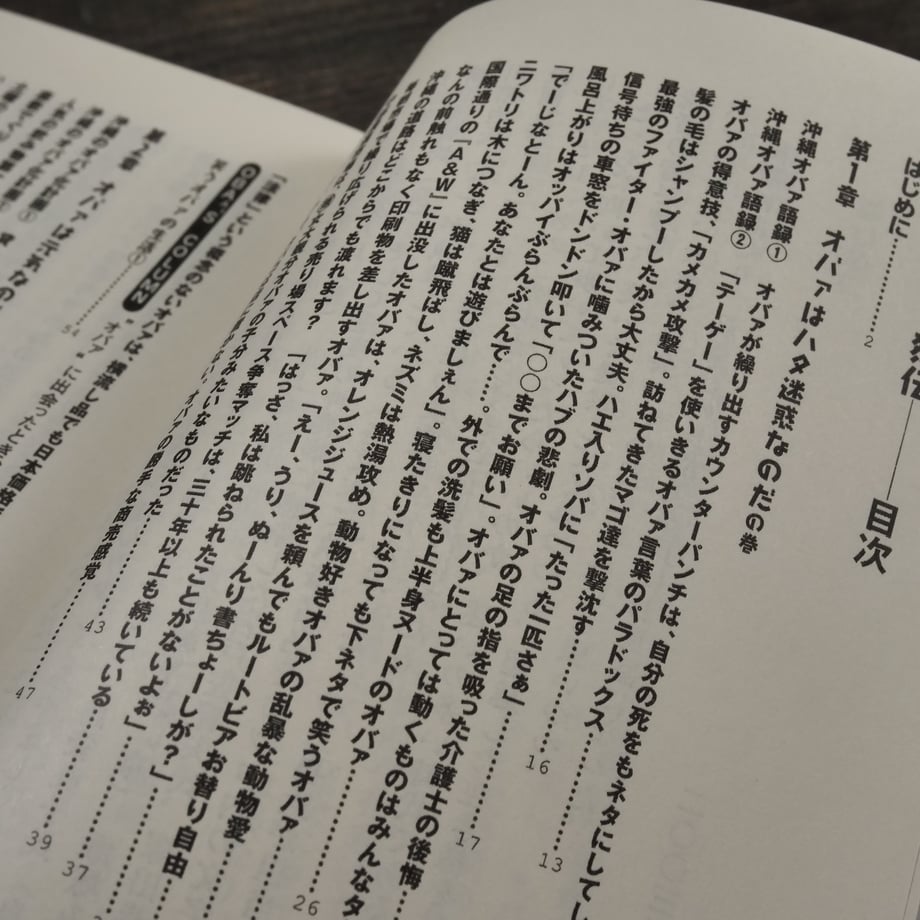 目次
はじめに………2
第1章 オバァはハタ迷惑なのだの巻
沖縄オバァ語録① オバァが繰り出すカウンターパンチは、自分の死をもネタにして
沖縄オバァ語録② 「テーゲー」を使いきるオバァ言葉のパラドックス………13
オバァの得意技、「カメカメ攻撃」。訪ねてきたマゴ達を撃沈す………16
髪の毛はシャンプーしたから大丈夫。ハエ入りソバに「たった一匹さぁ」………17
最強のファイター・オバァに噛みついたハブの悲劇。オバァの足の指を吸った介護士の後悔
信号待ちの車窓をドンドン叩いて「○○までお願い」。オバァにとっては動くものはみんなタ
風呂上がりはオッパイぶらんぶらんで……。外での洗髪も上半身ヌードのオバァ
「でーじなとーん。あなたとは遊びましぇん」。寝たきりになっても下ネタで笑うオバァ………26
ニワトリは木につなぎ、猫は蹴飛ばし、ネズミは熱湯攻め。動物好きオバァの乱暴な動物愛
国際通りの「A&W」に出没したオバァは、オレンジジュースを頼んでもルートビアお替り自由
なんの前触れもなく印刷物を差し出すオバァ。「えー、うり、ぬーんり書ちょーしが？」………37
沖縄の道路はどこからでも渡れます？ 「はっさ、私は跳ねられたことがないよぉ」………39
売り場スペース争奪マッチは、三十年以上も続いている
オバァの勝手な商売感覚………47
という概念のないオバァは、横流し品でも日本価格
OBA'S COLUMN
オバァに出会ったとき
54
第2章 オバァは元気なの